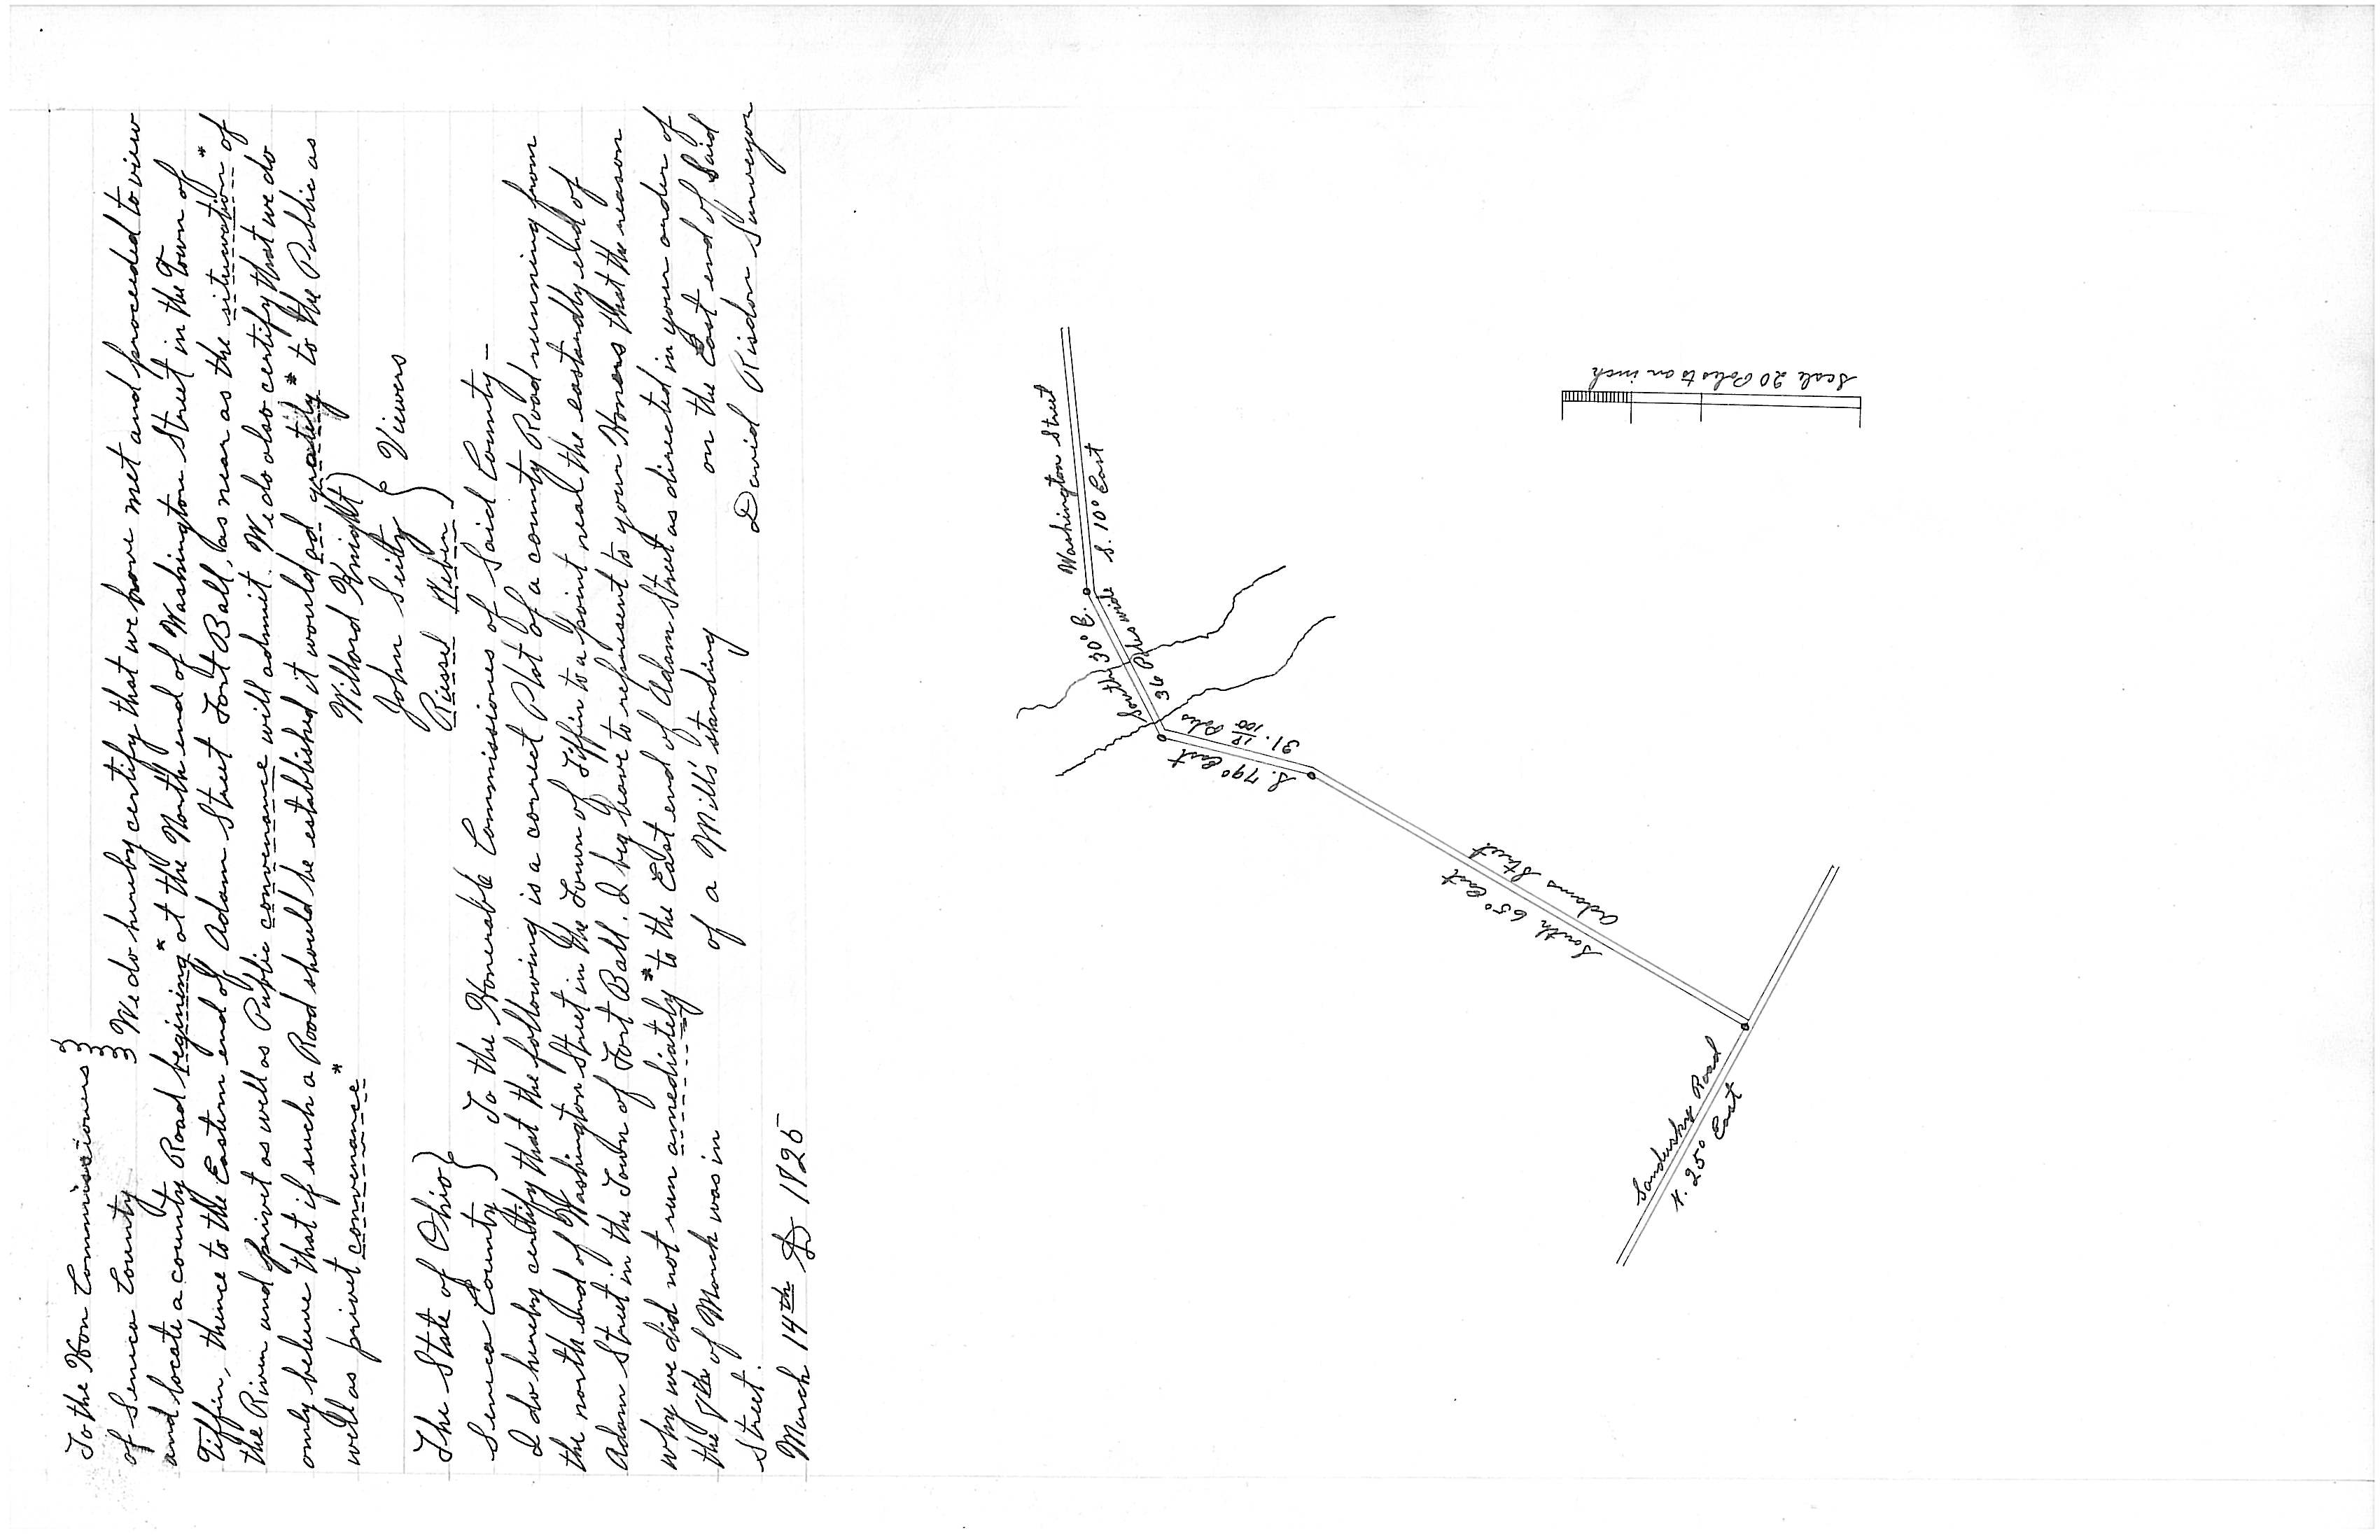 To the Hon Commissioners }
of Seneca County } We do hereby certify that we have met and proceeded to view
and locate a county Road begining* at the North end of Washington Street in the Town of
Tiffin, thence to the Eastern end of Adam Street Fort Ball, as near as the situwation* of
the River and privet as well as Public convenance will admit. We do also certify that we do
only beleive that if such a Road should be established it would ad grately* to the Public as
well as privet convenance*
Willard Knight
John Seity } Viewers
Rissel Neben
The State of Ohio }
Seneca County } To the Honerable Commissiones of Said County –
I do hereby certify that the following is a correct Plot of a county Road running from
the north end of Washington Street in the Town of Tiffin to a point near the eastardly end of
Adam Street in the Town of Fort Ball. I beg leave to represent to your Honers that the reason
why we did not run amediately* to the East end of Adam Street as directed in your order of
the 7th of March was in of a Mill's standing on the East end of Said
Street.
David Risdon Surveyor
March 14th AD 1825
Washington Street
S. 10° East
South 30° E.
36 Poles wide
S. 79° East
31. 18/100 Poles
South 65° East
Adams Street
Sandusky Road
N. 25° East
Scale 20 Poles to an inch